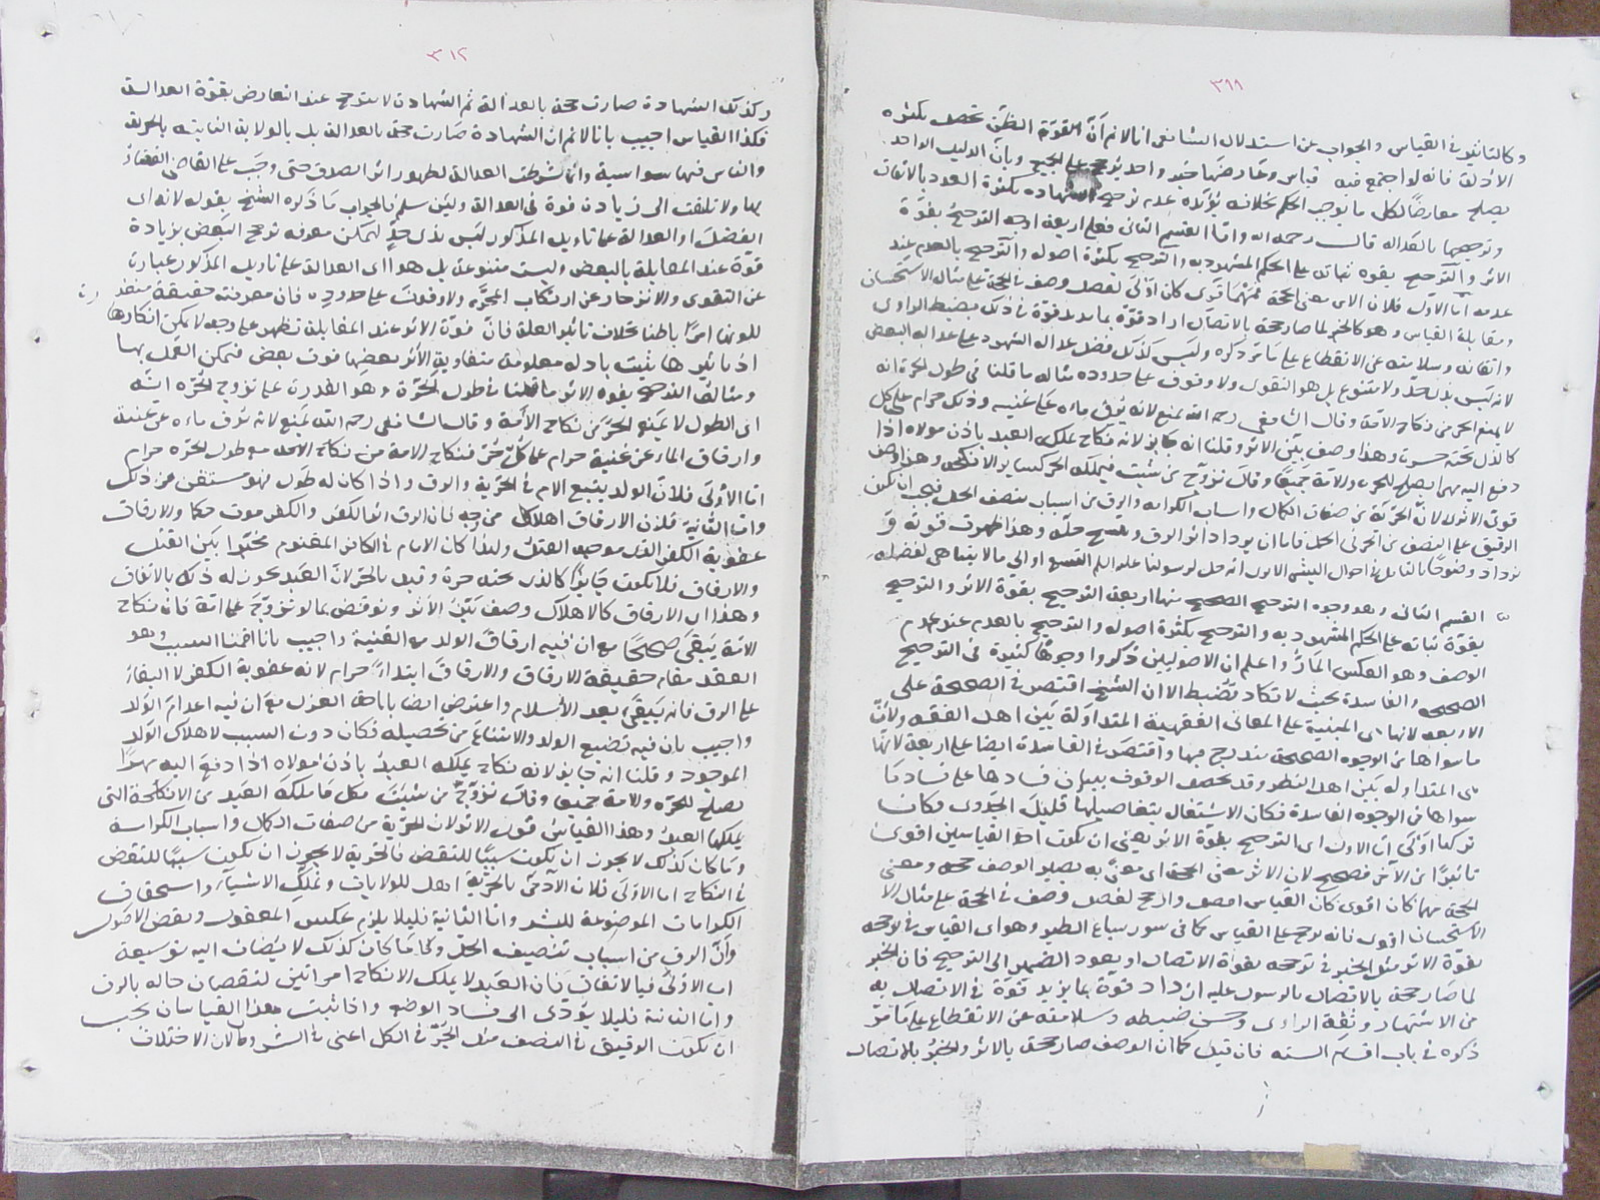 ٣١١
وكالتأثير في القياس والجواب عن استدلال الشافعي انا لا نم انّ القوة الظن تحصل بكثرة
الأدلة فانه لو اجتمع فيه قياس وعارضها خبر واحد يرجح على الجميع وبان الدليل الواحد
يصلح معارضا لكل ما يوجب الحكم بخلافه يؤيده عدم ترجيح الشهادة بكثرة العدد بالاتفاق
وترجيحها بالعدالة قال رحمه الله واما القسم الثاني فعلى اربعة اوجه الترجيح بقوة
الاثر والترجيح بقوة ثباته على الحكم المشهود به والترجيح بكثرة اصوله والترجيح بالعدم عند
عدمه اما الاول فلان الاثر معنى الحجة فمهما قوى كان اولى لفضل وصف في الحجة على مثال الاستحسان
ومقابلة القياس وهو كالخبر لما صار حجة بالاتصال ازداد قوة بما يزيد قوة في ذلك بضبط الراوى
واتقانه وسلامته عن الانقطاع على ما مر ذكره وليس كذلك فضل عدالة الشهود على عدالة البعض
لانه ليس بذى حد ولا متنوع بل هو التقوى ولا وقوف على حدوده مثاله ما قلنا في طول الحرة انه
لا يمنع الحر من نكاح الامة وقال الشافعى رحمه الله يمنع لانه يرق ماءه على غنية وذلك حرام على كل
كالذى تحته حرة وهذا وصف بيّن الاثر وقلنا انه جائز لانه نكاح يملكه العبد باذن مولاه اذا
دفع اليه مهرا يصلح للحرة والامة جميعا وقال تزوج من شئت فيملكه الحر كسائر الانكحة وهذا اوصف
قوى الاثر لان الحرية من صفات الكمال واسباب الكرامة والرق من اسباب تنصيف الحل فيجب ان يكون
الرقيق على النصف من الحر في الحل فاما ان يزداد اثر الرق و حله وهذا ظهرت قوته و
تزداد وضوحا بالتأمل في احوال البشر الا ترى انه حل لرسولنا عليه السلم التسع او الى ما لا يتناهى لفضله
القسم الثانى وهو وجوه الترجيح الصحيح منها اربعة الترجيح بقوة الاثر والترجيح
بقوة ثباته على الحكم المشهود به والترجيح بكثرة اصوله والترجيح بالعدم عند عدم
الوصف وهو العكس المار واعلم ان الاصوليين ذكروا وجوها كثيرة في الترجيح
الصحيحه والفاسدة بحيث لا تكاد تنضبط الا ان الشيخ اقتصر في الصحيحة على
الاربعه لانها هى المبنية على المعانى الفقهية المتداولة بين اهل الفقه ولان
ما سواها من الوجوه الصحيحة مندرج فيها واقتصر في الفاسدة ايضا على اربعة لانها
هى المتداوله بين اهل النظر وقد يحصل الوقوف ببيان فسادها على فساد ما
سواها من الوجوه الفاسدة فكان الاشتغال بتفاصيلها قليل الجدوى فكان
تركها اولى اما الاول اى الترجيح بقوة الاثر يعنى ان يكون احد القياسين اقوى
تأثيرا من الآخر فصحيح لان الاثر معنى الحجة اى معنى به يصير الوصف حجة ومعنى
الحجة مهما كان اقوى كان القياس اصح وارجح لفضل وصف في الحجة على مثال الا
الاستحسان اقوى فانه يرجح على القياس كما في سور سباع الطير وهو اى القياس في ترجحه
بقوة الاثر مثل الخبر في ترجحه بقوة الاتصال او يعود الضمير الى الترجيح فان الخبر
لما صار حجة بالاتصال بالرسول عليه ازداد قوة بما يزيد قوة في الاتصال به
من الاشتهار وثقة الراوى وحسن ضبطه وسلامته عن الانقطاع على ما مر
ذكره في باب اقسام السنه فان قيل كما ان الوصف صار حجة بالاثر والخبر بالاتصال
٣١٢
وكذلك الشهادة صارت حجة بالعدالة ثم الشهادة لا تترجح عند التعارض بقوة العدالة
فكذا القياس اجيب بانا لا نم ان الشهادة صارت حجة بالعدالة بل بالولاية الثابتة بالحرية
والناس فيها سواسية وانما شرطت العدالة لظهور اثر الصدق حتى وجب على القاضى القضاء
بها ولا تلتفت الى زيادة قوة في العدالة ولئن سلم فالجواب ما ذكره الشيخ بقوله لانه اى
الفضل او العدالة على تاويل المذكور ليس بذى حد ليمكن معرفة ترجح البعض بزيادة
قوة عند المقابلة بالبعض وليست متنوعة بل هو اى العدالة على تاويل المذكور عبارة
عن التقوى والانزجار عن ارتكاب المحرم ولا وقوف على حدوده فان معرفته حقيقة متعذر
لكونها امرا باطنا بخلاف تأثير العلة فان قوة الاثر عند المقابلة تظهر على وجه لا يمكن انكارها
اذ تأثيرها يثبت بادلة معلومة متفاوتة الاثر بعضها فوق بعض فيمكن العمل بها
ومثال الترجيح بقوة الاثر ما قلنا في طول الحرة وهو القدرة على تزوج الحرة انه
اى الطول لا يمنع الحر عن نكاح الأمة وقال الشافعى رحمه الله يمنع لانه يرق ماءه عن غنية
وارقاق الماء عن غنية حرام على كل حر فنكاح الامة من نكاح الامة مع طول الحرة حرام
اما الأولى فلان الولد يتبع الام في الحرية والرق واذا كان له طول فهو مستغن عن ذلك
واما الثانية فلان الارقاق اهلاك من وجه لان الرق اثر الكفر والكفر موت حكما والارقاق
عقوبة الكفر الذى موجبه القتل ولهذا كان الامام في الكافر المغنوم مخيرا بين القتل
والارقاق فلا يكون جايزا كالذى تحته حرة وقيد بالحر لان العبد يجوز له ذلك بالاتفاق
وهذا اى الارقاق كالاهلاك وصف بيّن الاثر ونوقض بما لو تزوج على امة فان نكاح
الامة يبقى صحيحا مع ان فيه ارقاق الولد مع الغنية واجيب بانا اقمنا السبب وهو
العقد مقام حقيقة الارقاق والارقاق ابتداء حرام لانه عقوبة الكفر لا البقاء
على الرق فانه يبقى بعد الأسلام واعترض ايضا باباحة العزل مع ان فيه اعدام الولد
واجيب بان فيه تضييع الولد والامتناع من تحصيله فكان دون السبب لاهلاك الولد
الموجود وقلنا انه جايز لانه نكاح يملكه العبد باذن مولاه اذا دفع اليه مهرا
يصلح للحرة والامة جميعا وقال تزوج من شئت فكل ما ملكه العبد من الانكحة التى
يملكها العبد وهذا القياس قوى الاثر لان الحرية من صفات الكمال واسباب الكرامة
وما كان كذلك لا يجوز ان يكون سببا للنقض فالحرية لا يجوز ان يكون سببا للنقض
في النكاح اما الاولى فلان الآدمى بالحرية اهل للولايات وتملك الاشياء واستحقاق
الكرامات الموضوعة للبشر واما الثانية فليلا يلزم عكس المعقول ونقض الاصول
وانّ الرق من اسباب تنصيف الحل وكل ما كان كذلك لا يضاف اليه توسيعة
اما الاولى فبالاتفاق فان العبد لا يملك الا نكاح امراتين لنقصان حاله بالرق
واما الثانية فليلا يؤدى الى فساد الوضع واذا ثبت هذا ان القياسان يجب
ان يكون الرقيق في النصف مثل الحر في الكل اعنى في الشروط لان الاختلاف